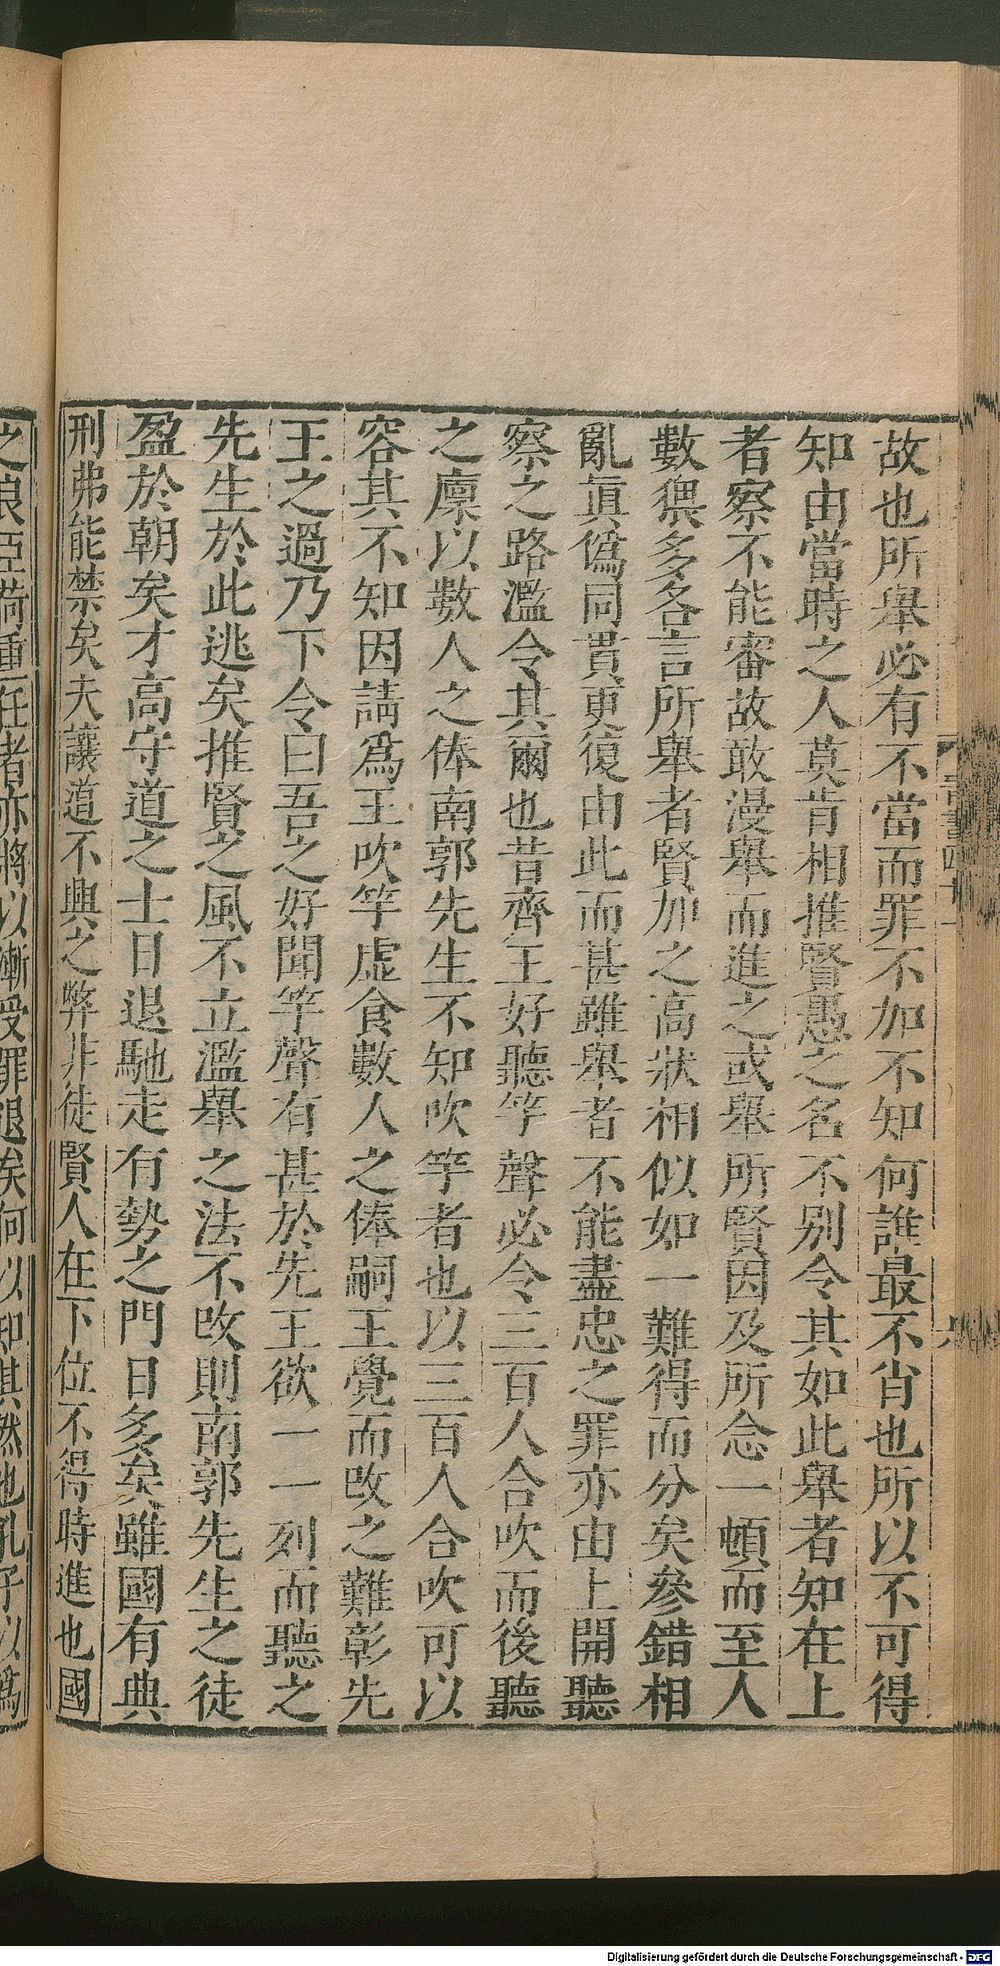 故也所舉必有不當而罪不加不知何誰最不肖也所以不可得
知由當時之人莫肯相推賢愚之名不别令其如此舉者知在上
者察不能審故敢漫舉而進之或舉所賢因及所念一頓而至人
數猥多各言所舉者賢加之高狀相似如一難得而分矣參錯相
亂眞僞同貫更復由此而甚雖舉者不能盡忠之罪亦由上開聽
察之路濫令其爾也昔齊王好聽竽聲必令三百人合吹而後聽
之廩以數人之俸南郭先生不知吹竽者也以三百人合吹可以
容其不知因請爲王吹竽虛食數人之俸嗣王覺而改之難彰先
王之過乃下令曰吾之好聞竽聲有甚於先王欲一一列而聽之
先生於此逃矣推賢之風不立濫舉之法不改則南郭先生之徒
盈於朝矣才高守道之士日退馳走有勢之門日多矣雖國有典
刑弗能禁矣夫讓道不興之弊非徒賢人在下位不得時進也國
之良臣荷重任者亦將以漸受罪退矣何以知其然也孔子以爲
晉書四十一
八
Digitalisierung gefördert durch die Deutsche Forschungsgemeinschaft - DFG